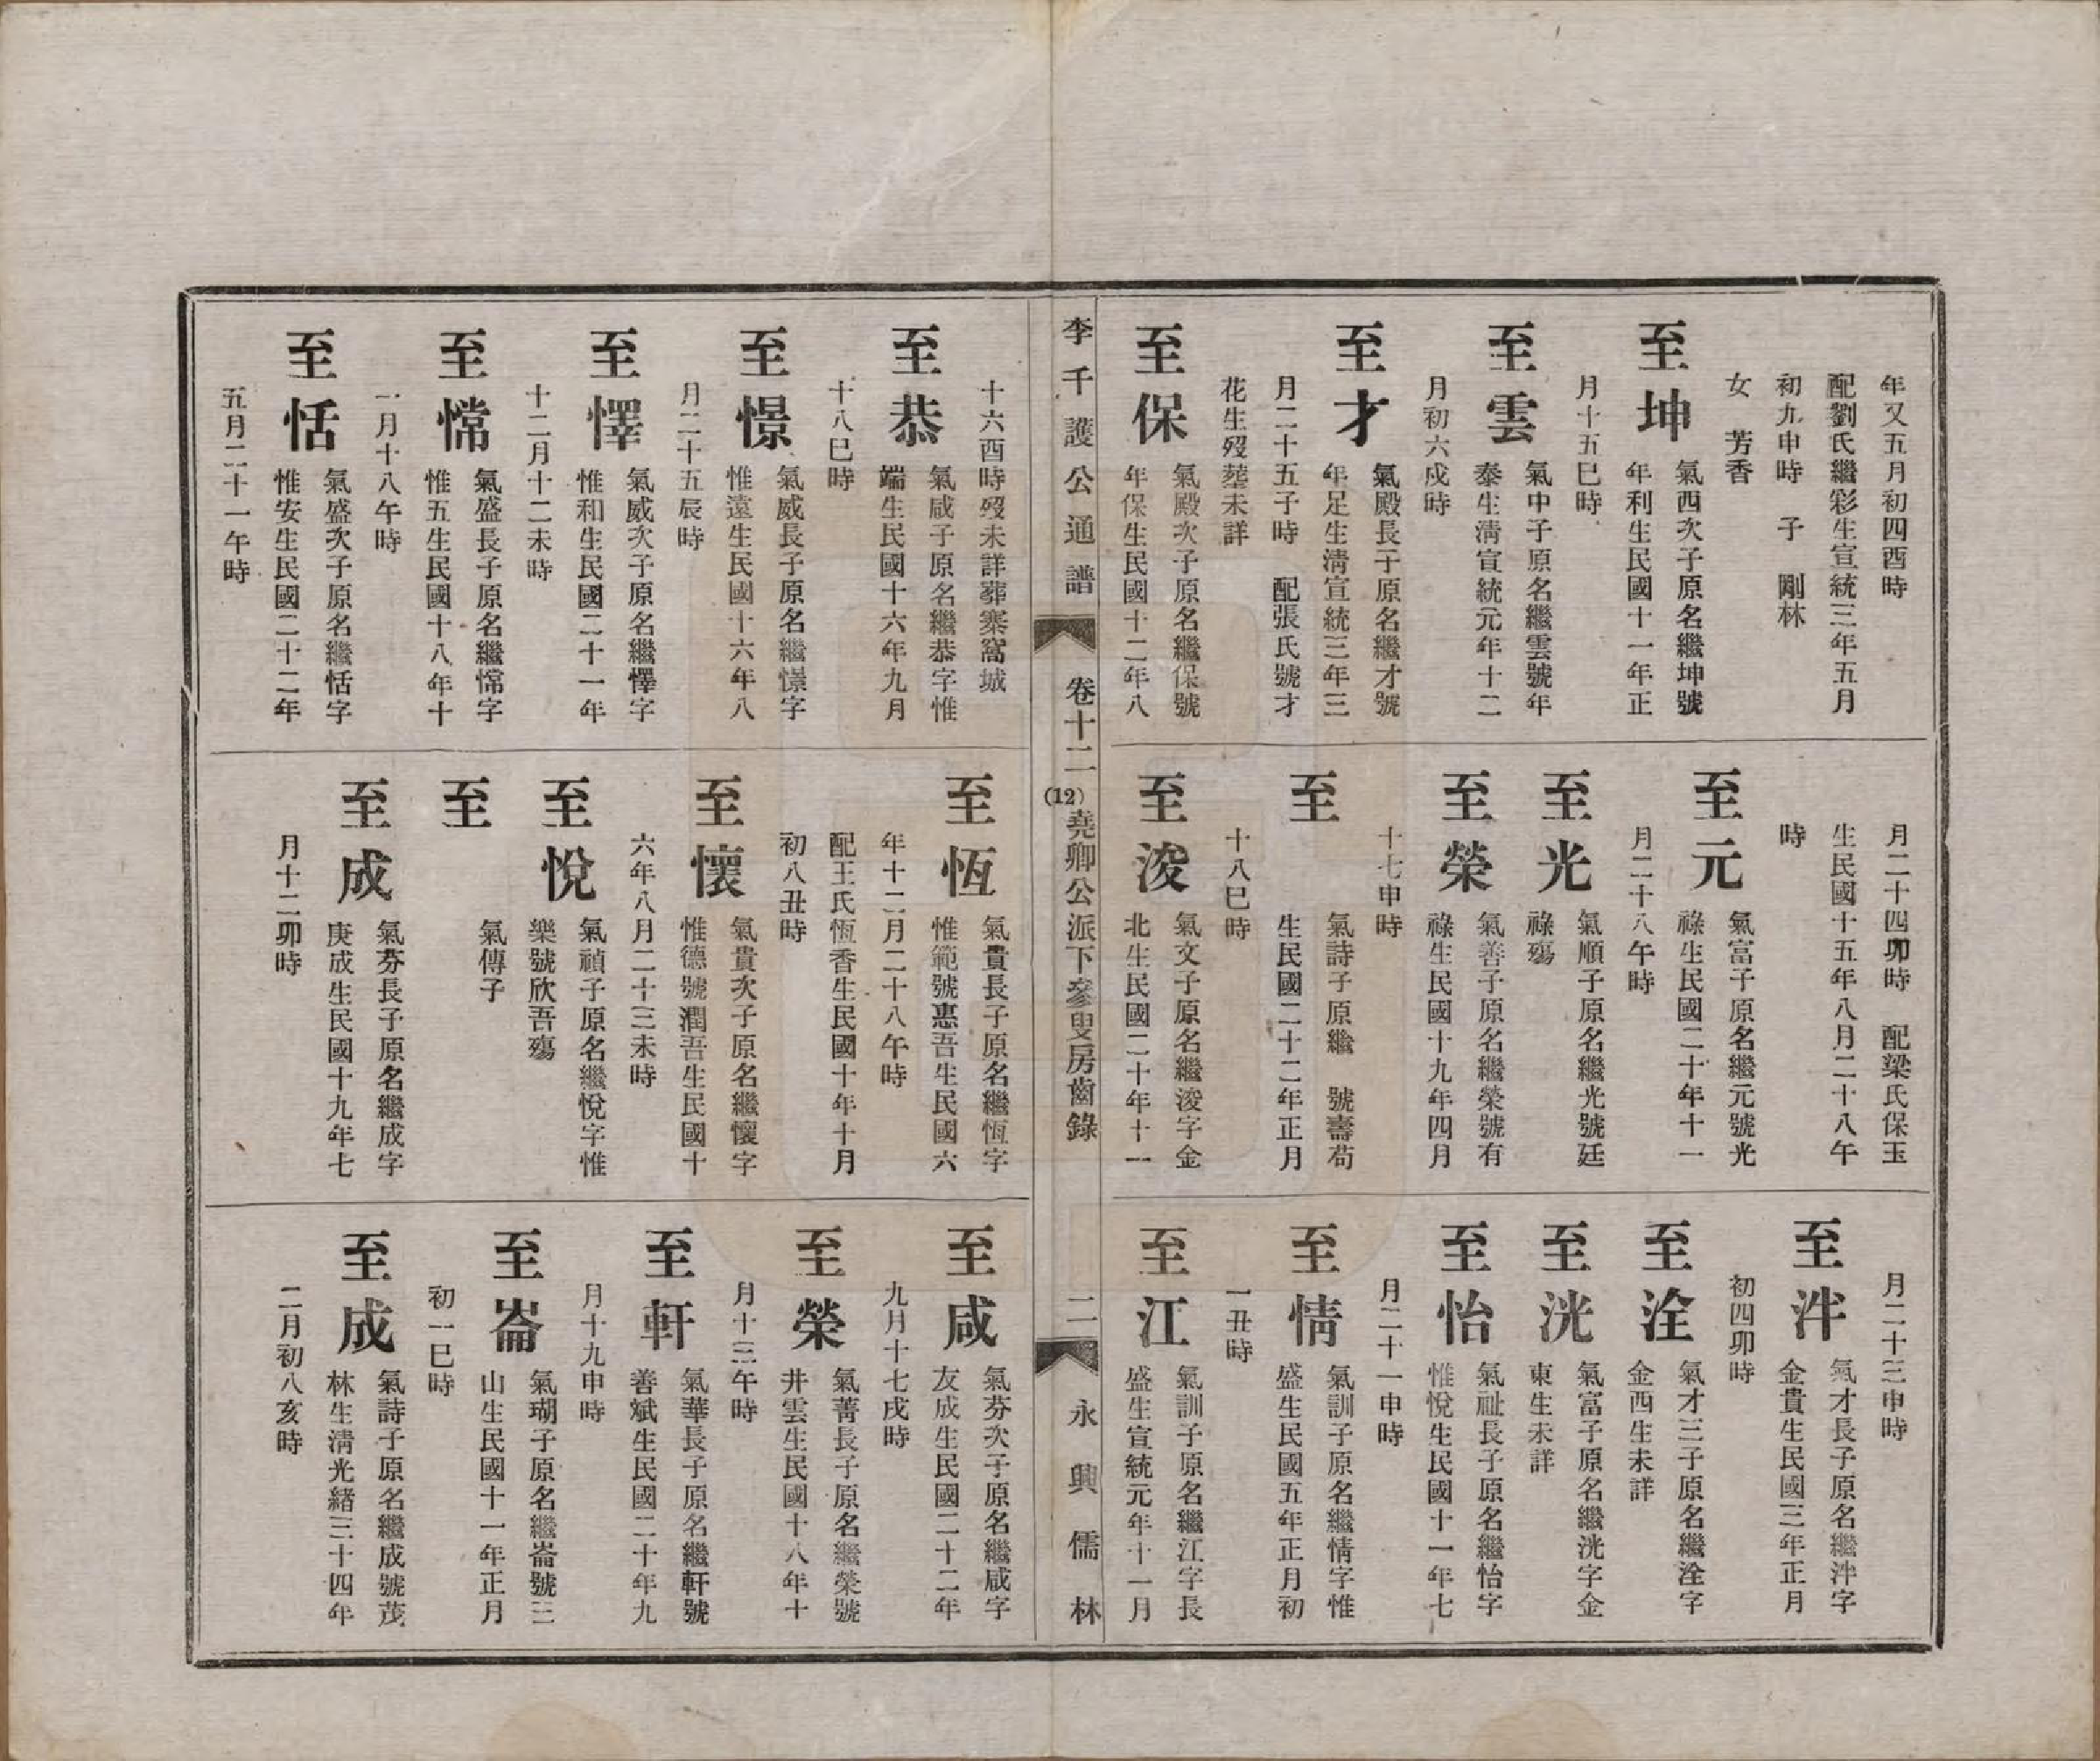 年又五月初四酉時
配劉氏繼彩生宣統三年五月
初九申時　子　剛林
女　芳香
至坤
氣西次子原名繼坤號
年利生民國十一年正
月十五巳時
至雲
氣中子原名繼雲號年
泰生清宣統元年十二
月初六戍時
至才
氣殿長子原名繼才號
年足生清宣統三年三
月二十五子時　配張氏號才
花生歿葬未詳
至保
氣殿次子原名繼保號
年保生民國十二年八
月二十四卯時　配梁氏保玉
生民國十五年八月二十八午
時
至元
氣富子原名繼元號光
祿生民國二十年十一
月二十八午時
至光
氣順子原名繼光號廷
祿殤
至榮
氣善子原名繼榮號有
祿生民國十九年四月
十七申時
至
氣詩子原繼　號壽苟
生民國二十二年正月
十八巳時
至浚
氣文子原名繼浚字金
北生民國二十年十一
月二十三申時
至泮
氣才長子原名繼泮字
金貴生民國三年正月
初四卯時
至洤
氣才三子原名繼洤字
金西生未詳
至洸
氣富子原名繼洸字金
東生未詳
至怡
氣祉長子原名繼怡字
惟悅生民國十一年七
月二十一申時
至情
氣訓子原名繼情字惟
盛生民國五年正月初
一丑時
至江
氣訓子原名繼江字長
盛生宣統元年十一月
李千護公通譜
卷十二
(12)
堯卿公派下參叟房齒錄
二
永興儒林
十六酉時歿未詳葬寨窩城
至恭
氣咸子原名繼恭字惟
端生民國十六年九月
十八巳時
至憬
氣威長子原名繼憬字
惟遠生民國十六年八
月二十五辰時
至懌
氣威次子原名繼懌字
惟和生民國二十一年
十二月十二未時
至常
氣盛長子原名繼常字
惟五生民國十八年十
一月十八午時
至恬
氣盛次子原名繼恬字
惟安生民國二十二年
五月二十一午時
至恆
氣貴長子原名繼恆字
惟範號惠吾生民國六
年十二月二十八午時
配王氏恆香生民國十年十月
初八丑時
至懷
氣貴次子原名繼懷字
惟德號潤吾生民國十
六年八月二十三未時
至悅
氣禎子原名繼悅字惟
樂號欣吾殤
至
氣傳子
至成
氣芬長子原名繼成字
庚成生民國十九年七
月十二卯時
至咸
氣芬次子原名繼咸字
友成生民國二十二年
九月十七戌時
至榮
氣菁長子原名繼榮號
井雲生民國十八年十
月十三午時
至軒
氣華長子原名繼軒號
善斌生民國二十年九
月十九申時
至崙
氣瑚子原名繼崙號三
山生民國十一年正月
初一巳時
至成
氣詩子原名繼成號茂
林生清光緒三十四年
二月初八亥時